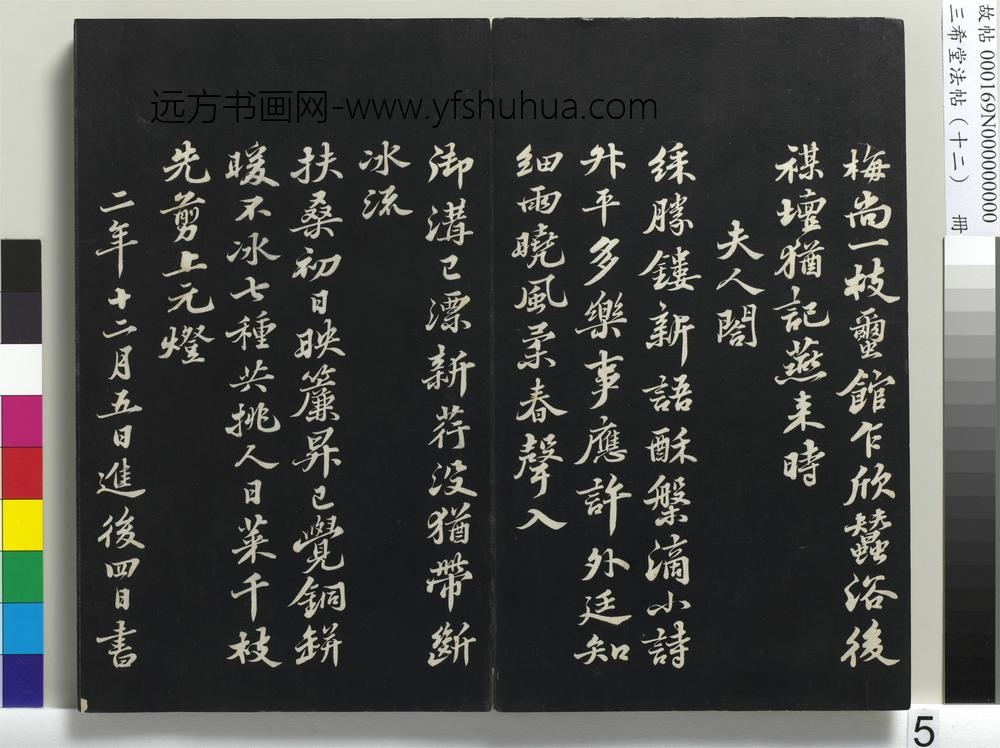 梅尚一枝蠒館乍欣蠶浴後
禖壇猶記燕来時
夫人閤
綵勝鏤新語酥槃滴小詩
升平多樂事應許外廷知
細雨曉風柔春聲入
御溝已漂新荇没猶帶斷
冰流
扶桑初日映簾昇已覺銅缾
暖不冰七種共挑人日菜千枝
先剪上元燈
二年十二月五日進後四日書
远方书画网-www.yfshuhua.com
故帖 000169N000000000
三希堂法帖（十二） 冊
5